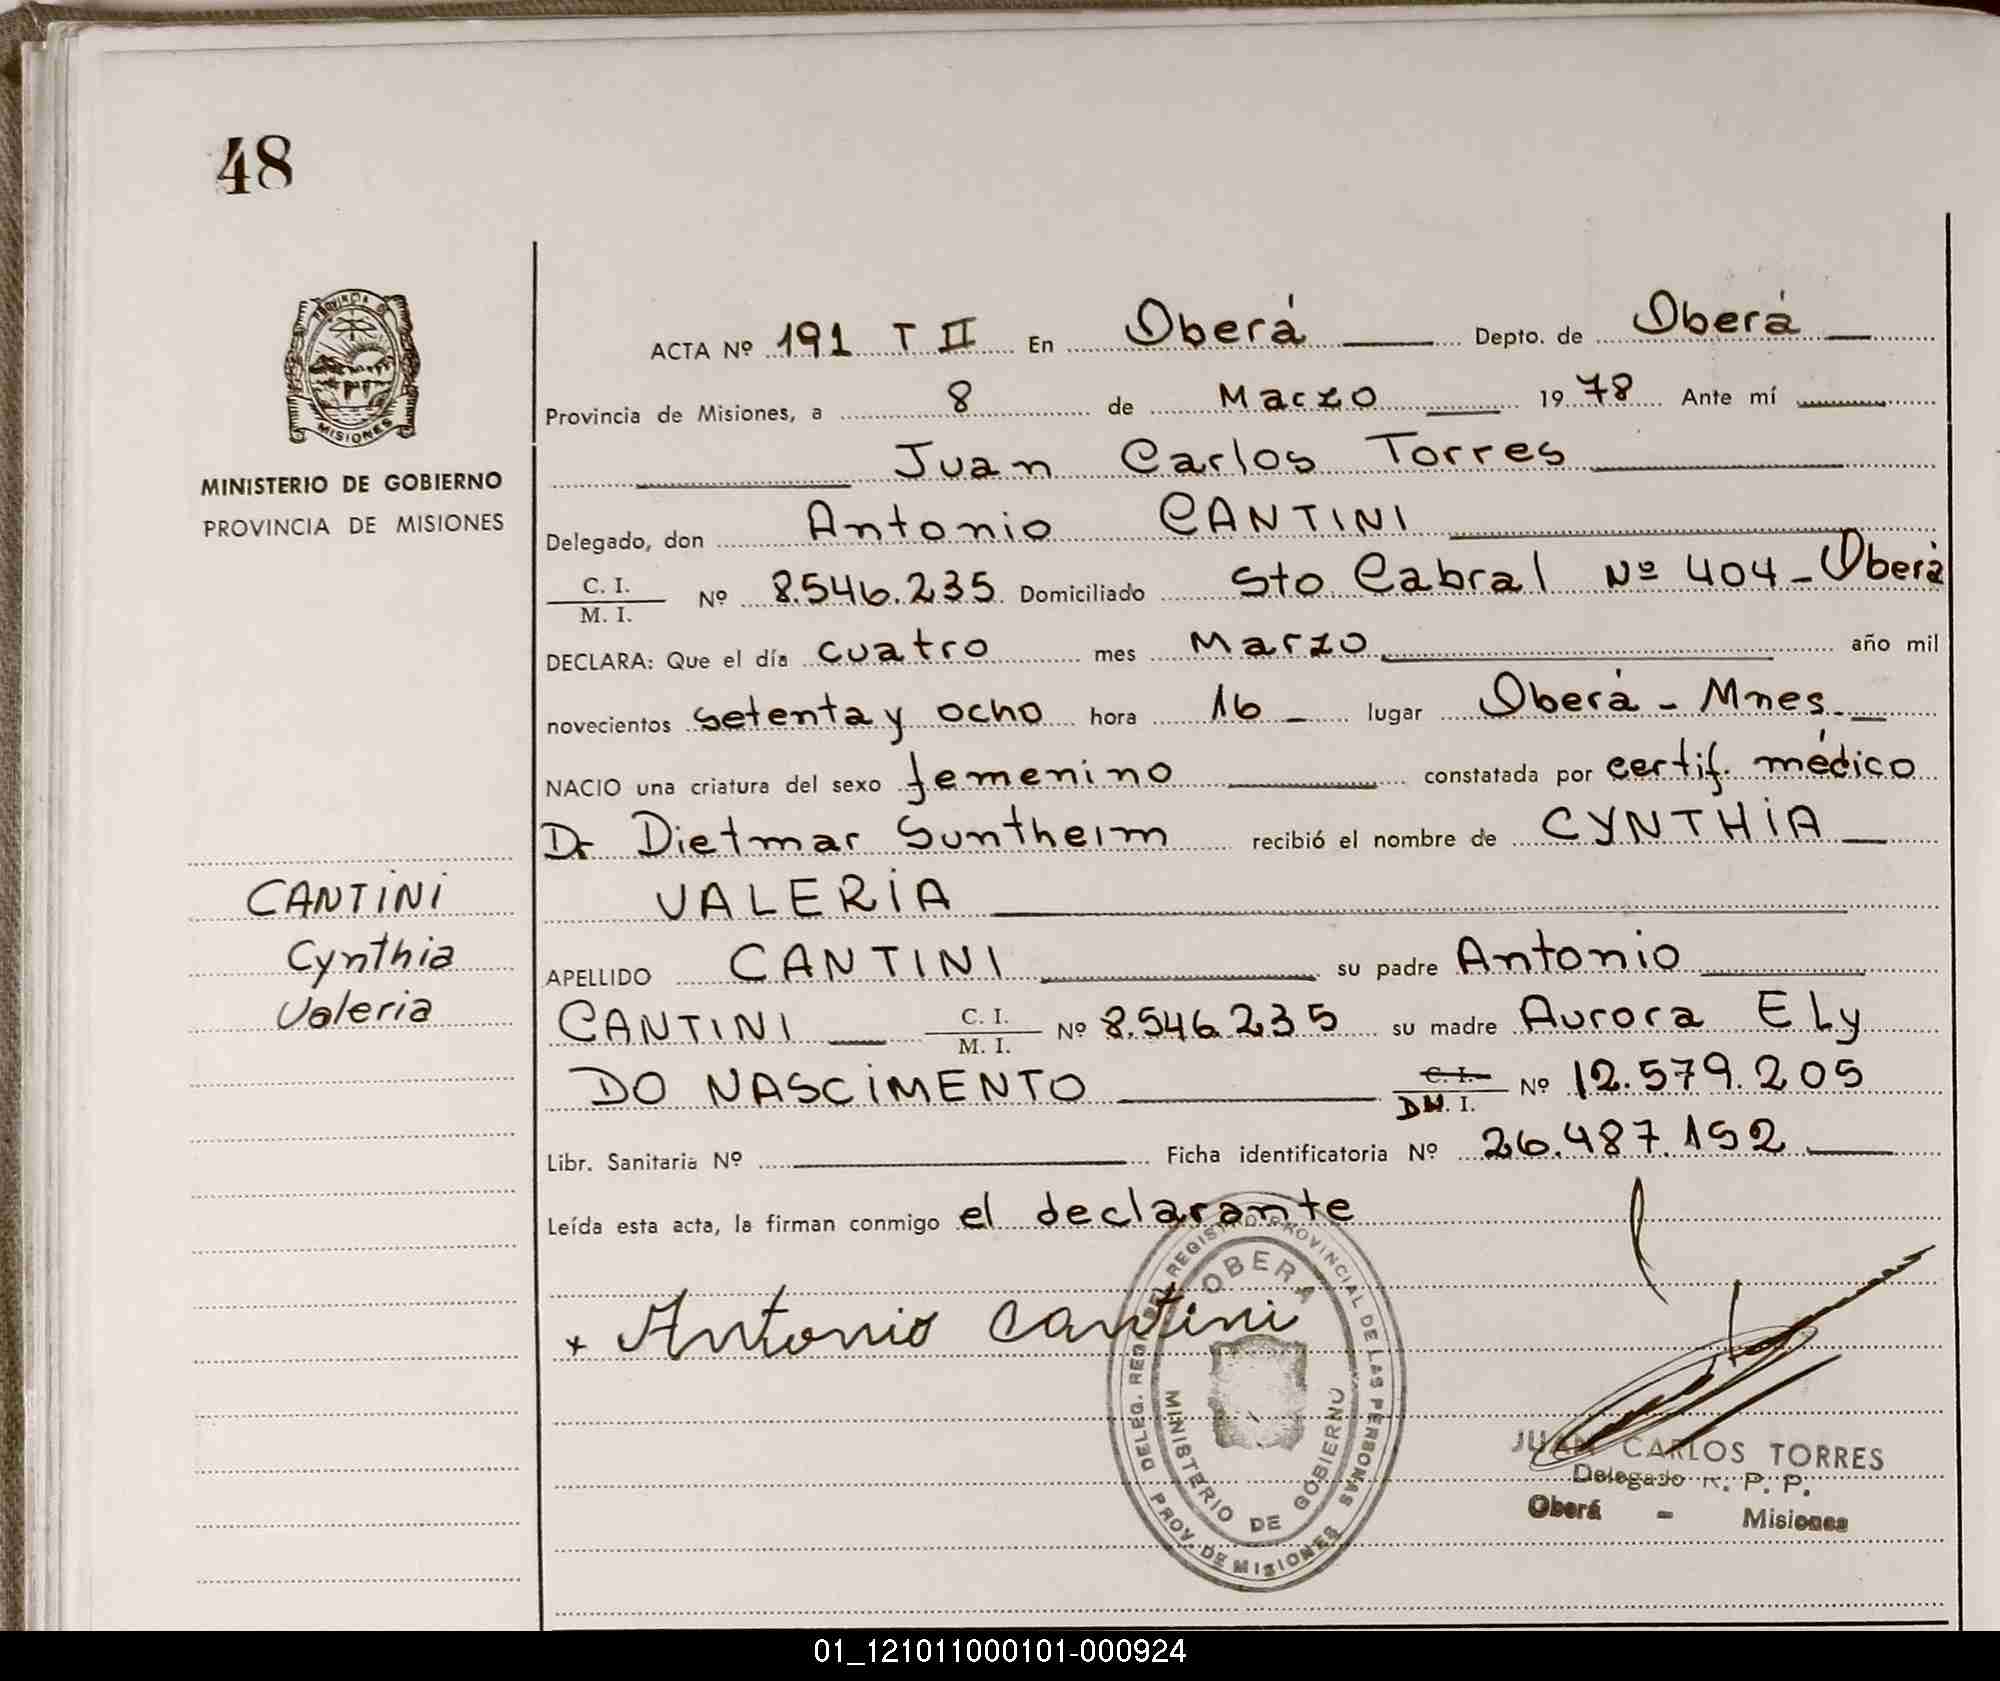 48
PROVINCIA DE
MISIONES
MINISTERIO DE GOBIERNO
PROVINCIA DE MISIONES
CANTINI
Cynthia
Valeria
ACTA Nº 191 T II En Oberá Depto. de Oberá
Provincia de Misiones, a 8 de Marzo 1978 Ante mí
Juan Carlos Torres
Delegado, don Antonio CANTINI
C. I.
M. I. Nº 8.546.235 Domiciliado Sto Cabral Nº 404 - Oberá
DECLARA: Que el día cuatro mes Marzo año mil
novecientos setenta y ocho hora 16 - lugar Oberá - Mnes.
NACIO una criatura del sexo femenino constatada por certif. médico
Dr Dietmar Suntheim recibió el nombre de CYNTHIA
VALERIA
APELLIDO CANTINI su padre Antonio
CANTINI C. I.
M. I. Nº 8.546.235 su madre Aurora Ely
DO NASCIMENTO C. I.
DN. I. Nº 12.579.205
Libr. Sanitaria Nº Ficha identificatoria Nº 26.487.152
Leída esta acta, la firman conmigo el declarante
+ Antonio Cantini
OBERA
MINISTERIO DE GOBIERNO
DELEG. REG. DEL REGISTRO PROVINCIAL DE LAS PERSONAS
PROV. DE MISIONES
JUAN CARLOS TORRES
Delegado R. P. P.
Oberá - Misiones
01_121011000101-000924